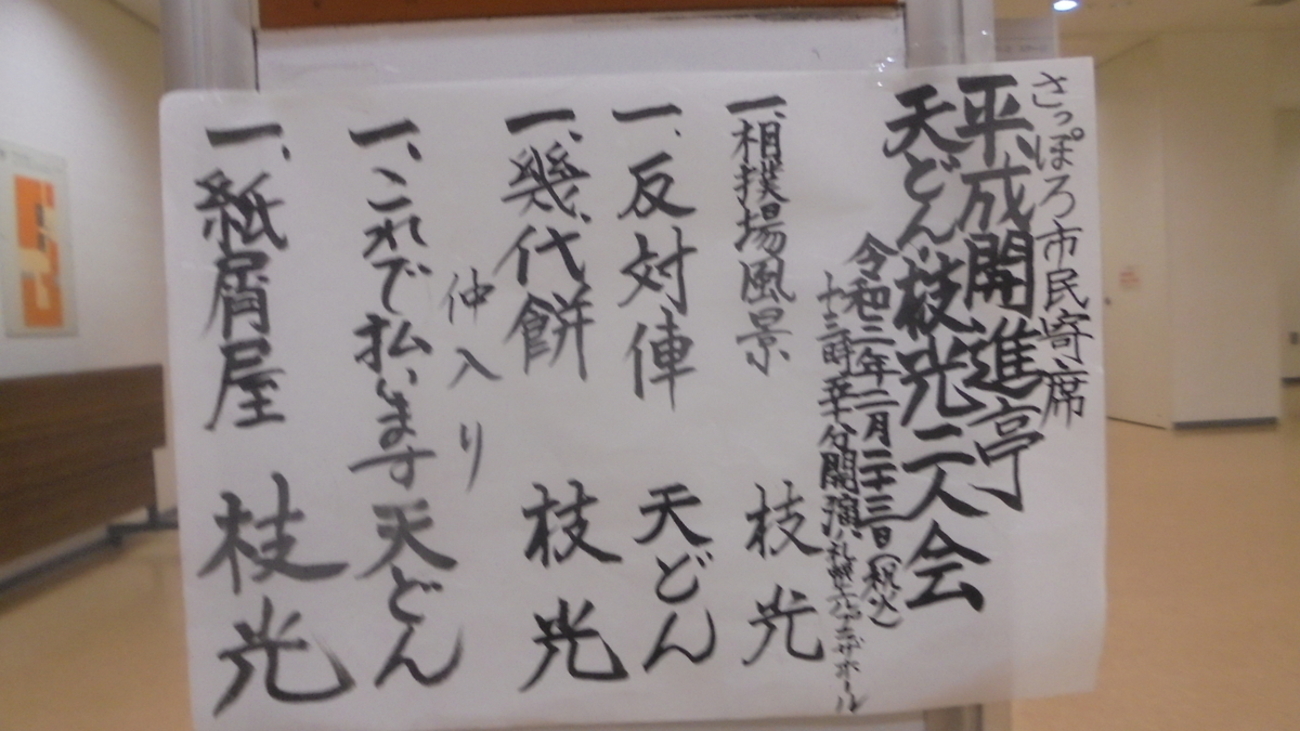 さっぽろ市民寄席
平成開進亭
天どん・枝光二人会
令和三年二月二十三日(祝火)
十三時五十分開演 札幌エルプラザホール
一、相撲場風景 枝光
一、反対俥 天どん
一、幾代餅 枝光
仲入り
一、これで払います 天どん
一、紙屑屋 枝光